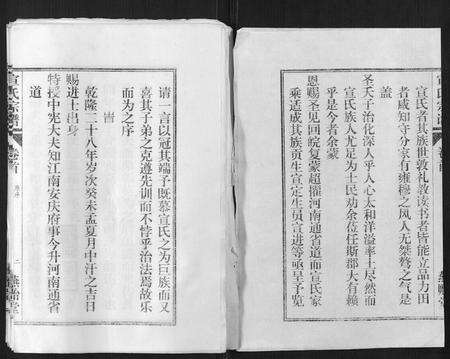 宣氏者其族世敦礼教读书者皆能立品力田
者咸知守分家有雍穆之风人无桀骜之气是
盖
圣天子治化深人乎人心太和洋溢率土尽然而
宣氏族人尤足为士民劝余位任斯郡大有赖
乎是今者余蒙
恩赐圣见回皖复蒙超擢河南通省道而宣氏家
乘适成其族贡生宣定生员宣进等亟呈予览
请一言以冠其端予既慕宣氏之为巨族而又
喜其子弟之克遵先训而不悖乎治法焉故乐
而为之序
峕
乾隆二十八年岁次癸未孟夏月中汗之吉日
赐进士出身
特授中宪大夫知江南安庆府事今升河南通省
道
宣氏宗谱
卷首
二
宣氏宗谱
卷首